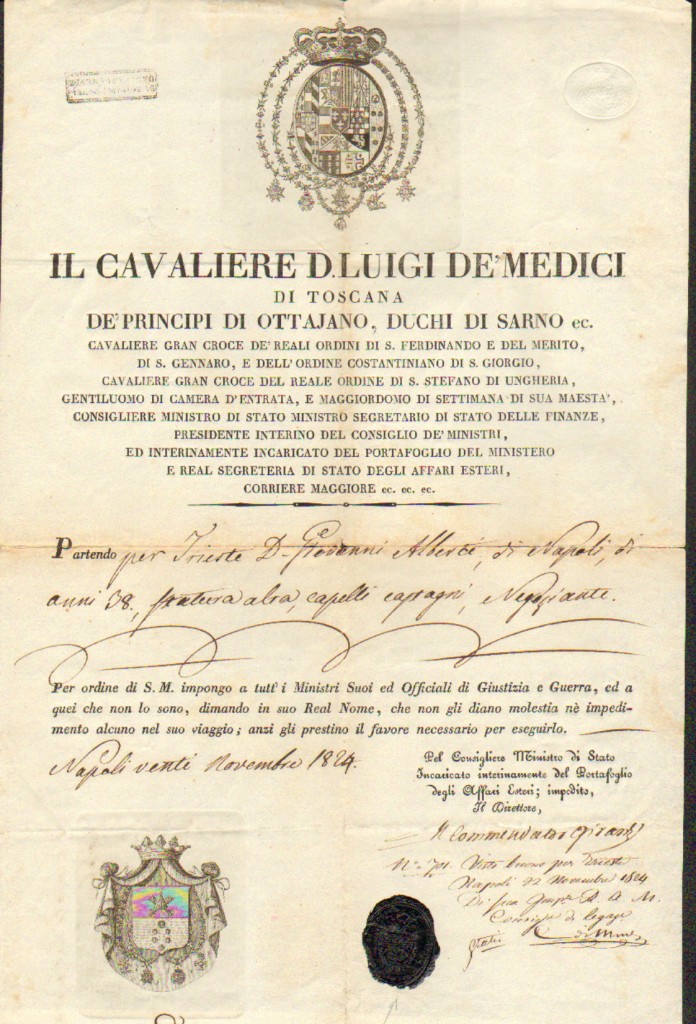 IL CAVALIERE D. LUIGI DE' MEDICI
DI TOSCANA
DE' PRINCIPI DI OTTAJANO, DUCHI DI SARNO ec.
CAVALIERE GRAN CROCE DE' REALI ORDINI DI S. FERDINANDO E DEL MERITO,
DI S. GENNARO, E DELL'ORDINE COSTANTINIANO DI S. GIORGIO,
CAVALIERE GRAN CROCE DEL REALE ORDINE DI S. STEFANO DI UNGHERIA,
GENTILUOMO DI CAMERA D'ENTRATA, E MAGGIORDOMO DI SETTIMANA DI SUA MAESTA',
CONSIGLIERE MINISTRO DI STATO MINISTRO SEGRETARIO DI STATO DELLE FINANZE,
PRESIDENTE INTERINO DEL CONSIGLIO DE' MINISTRI,
ED INTERINAMENTE INCARICATO DEL PORTAFOGLIO DEL MINISTERO
E REAL SEGRETERIA DI STATO DEGLI AFFARI ESTERI,
CORRIERE MAGGIORE ec. ec. ec.
Partendo per Trieste D. Giovanni Alberti, di Napoli, di
anni 38, statura alta, capelli castagni, Negoziante.
Per ordine di S. M. impongo a tutt' i Ministri Suoi ed Officiali di Giustizia e Guerra, ed a
quei che non lo sono, dimando in suo Real Nome, che non gli diano molestia nè impedi-
mento alcuno nel suo viaggio; anzi gli prestino il favore necessario per eseguirlo.
Napoli venti Novembre 1824.
Pel Consigliere Ministro di Stato
Incaricato interinamente del Portafoglio
degli Affari Esteri; impedito,
Il Direttore,
Il Commendator
Visto buono per Trieste
Napoli 22 Novembre 1824
Di Sua